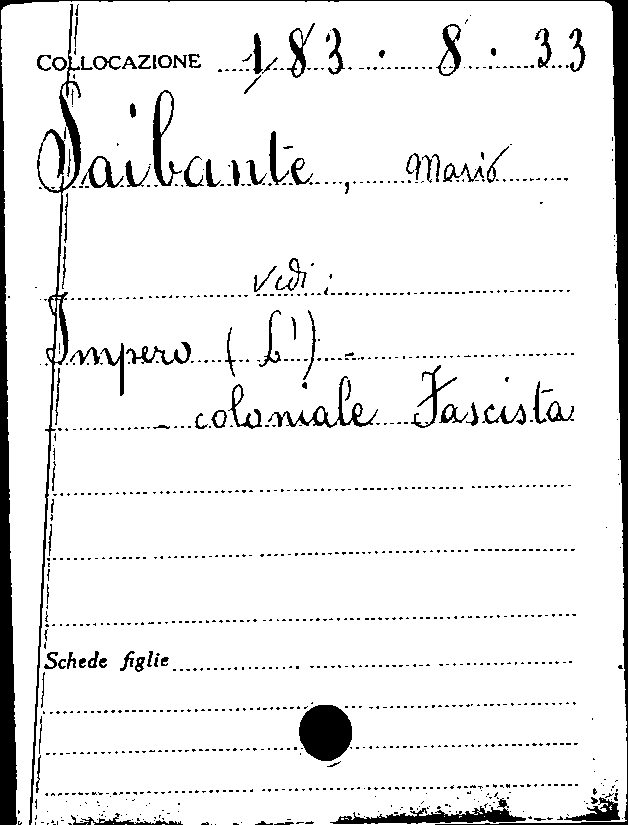 COLLOCAZIONE 183 · 8 · 33
Saibante, Mario
vedi:
Impero (L') -
- coloniale Fascista
Schede figlie